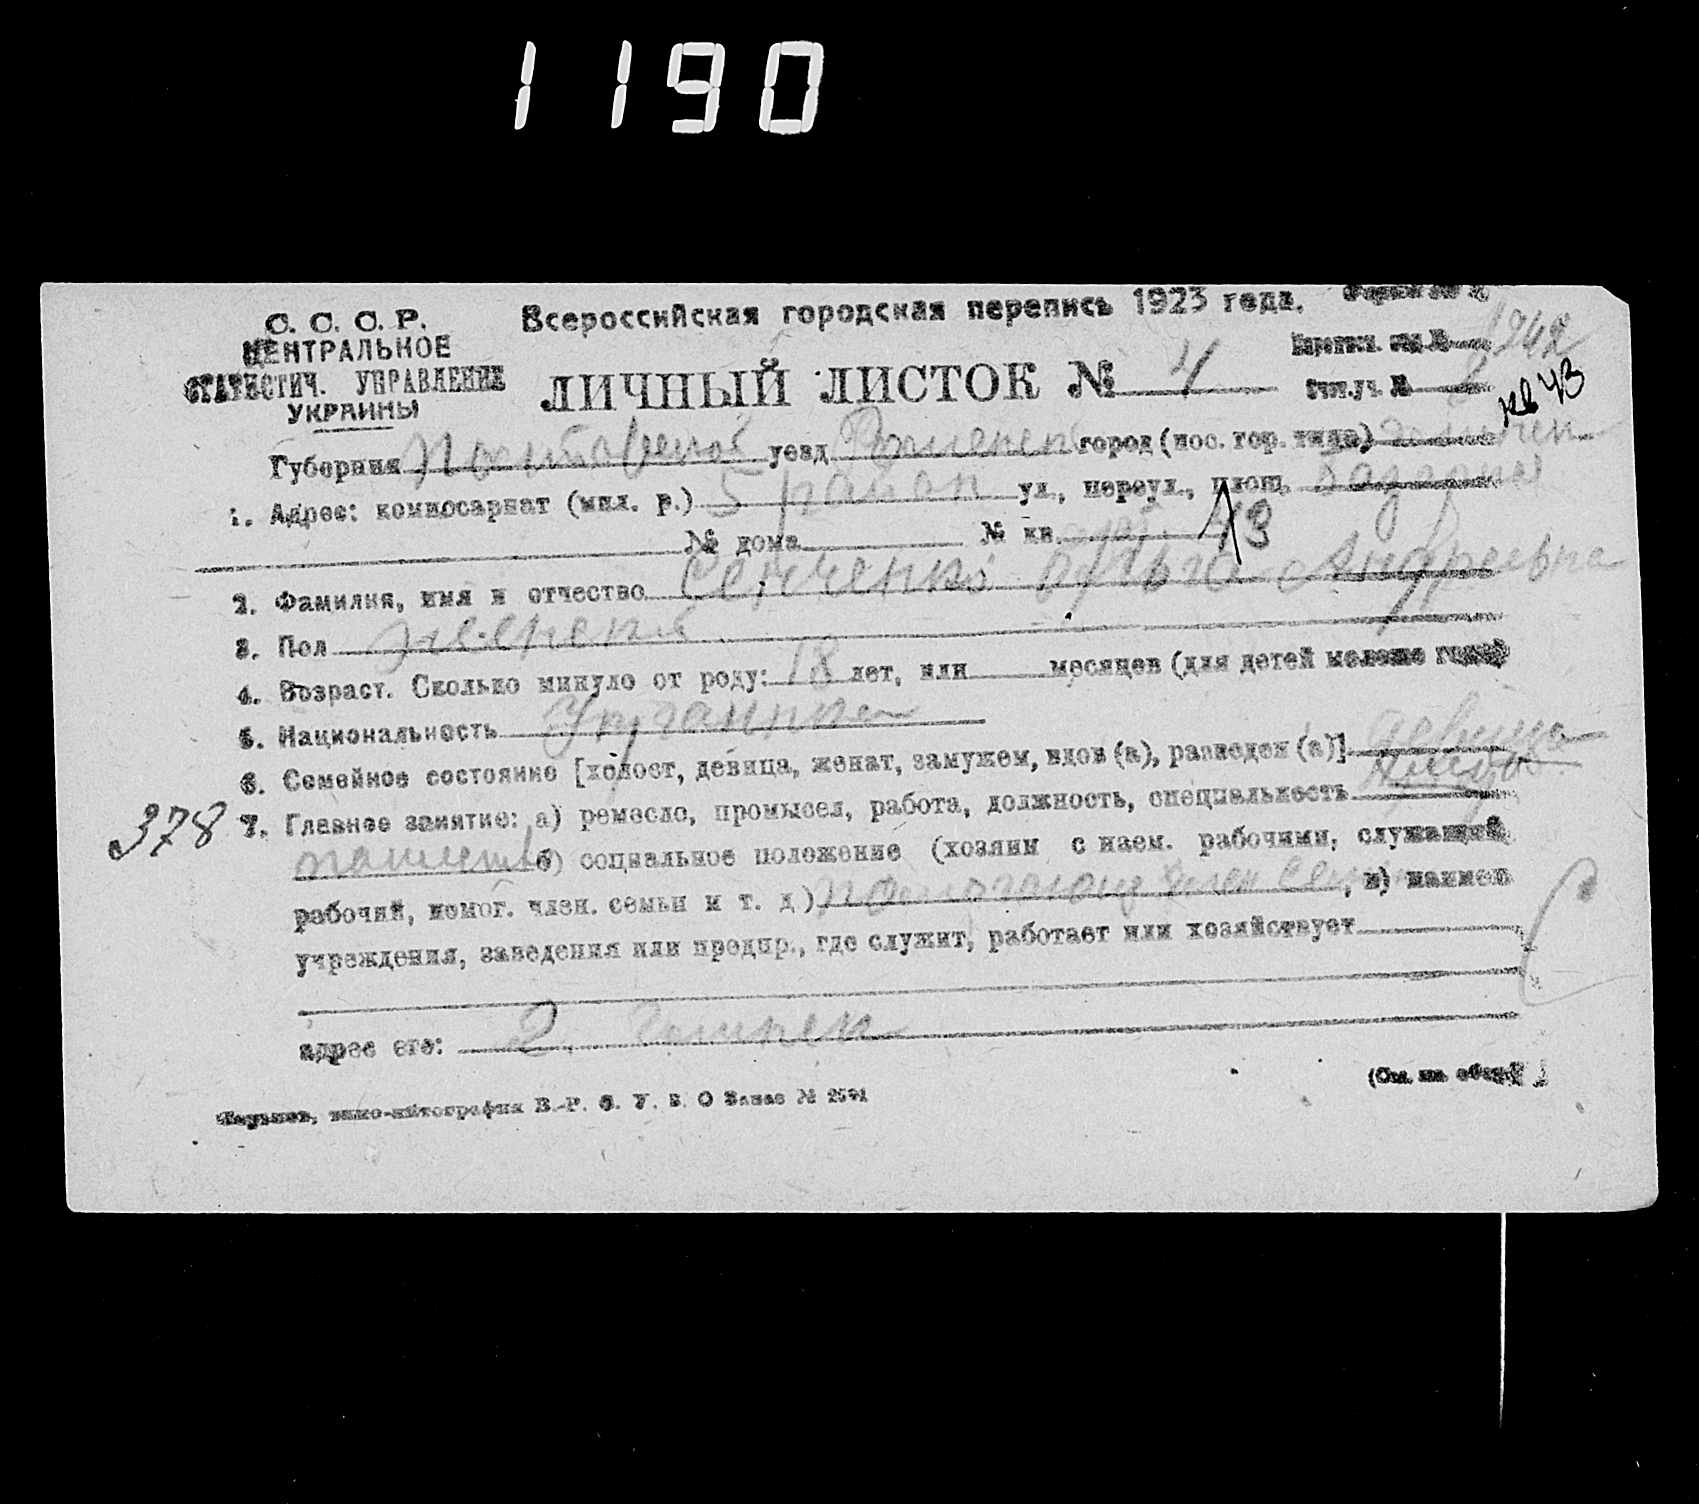 1190
С. С. С. Р.
ЦЕНТРАЛЬНОЕ
СТАТИСТИЧ. УПРАВЛЕНИЕ
УКРАИНЫ
Всероссийская городская перепись 1923 года.
ЛИЧНЫЙ ЛИСТОК № 4
Счетн. уч. №
кв 43
Губерния Полтавской уезд Роменск город (пос. гор. типа)
1. Адрес: комиссариат (мил. р.) 5 район ул., переул., площ.
№ дома № кв. 13
2. Фамилия, имя и отчество Ольга Андреевна
3. Пол женский
4. Возраст. Сколько минуло от роду: 18 лет, или месяцев (для детей моложе года)
5. Национальность Украинка
6. Семейное состояние [холост, девица, женат, замужем, вдов (а), разведен (а)] девица
378 7. Главное занятие: а) ремесло, промысел, работа, должность, специальность
б) социальное положение (хозяин с наем. рабочими, служащий
рабочий, помог. член. семьи и т. д.) помогающ член семьи, в) наимен
учреждения, заведения или предпр., где служит, работает или хозяйствует
адрес его: 2.
Харьков, цинко-литография В.-Р. З. У. В. О Заказ №
(См. на обор.)